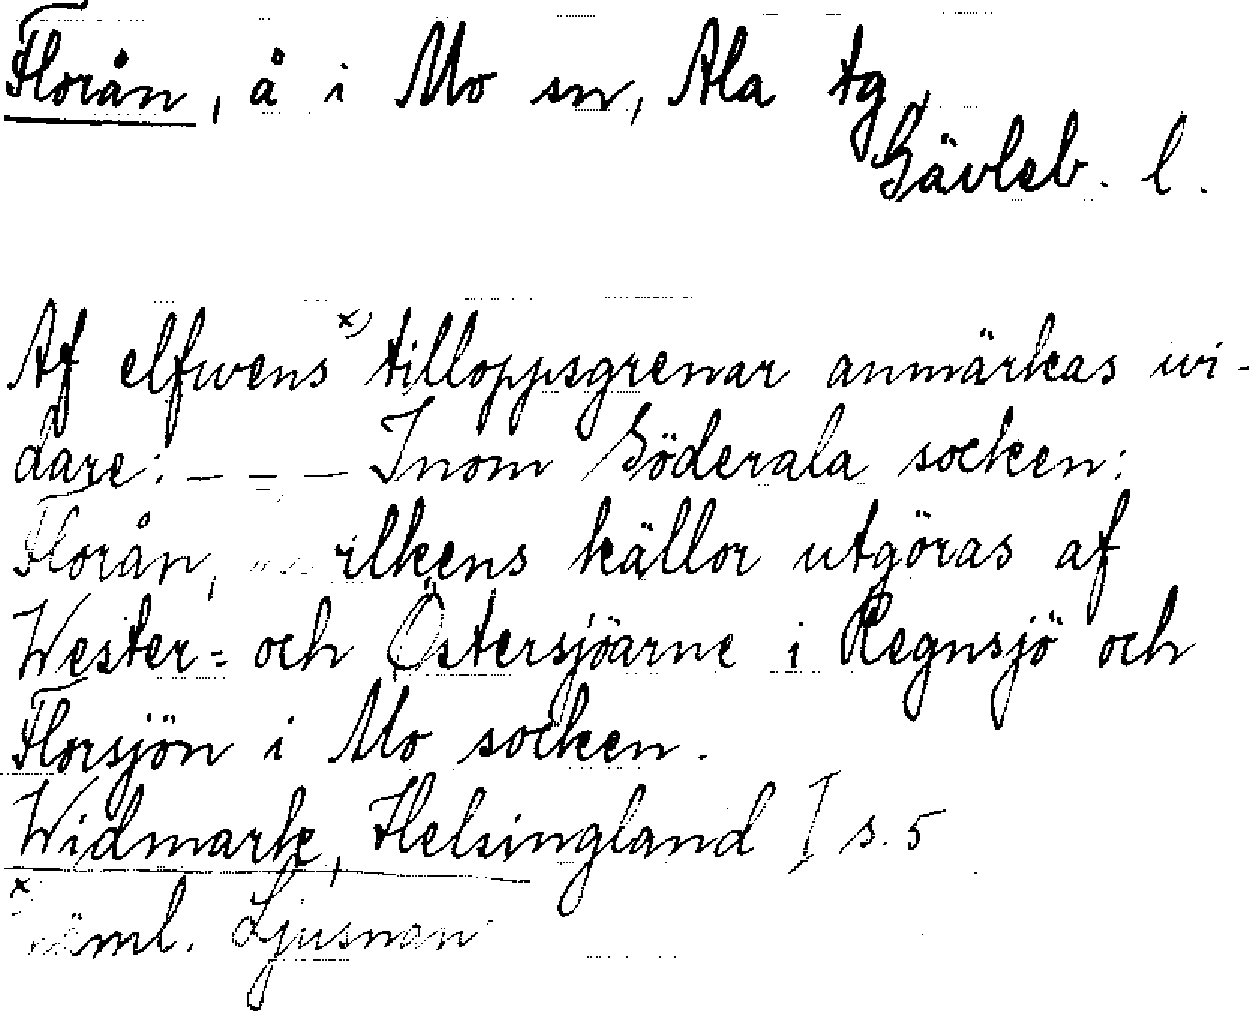 Florån, å i Mo sn, Ala tg
Gävleb. l.
Af elfwens x) tilloppsgrenar anmärkas wi-
dare: - - - Inom Söderala socken:
Florån, hvilkens källor utgöras af
Wester= och Östersjöarne i Regnsjö och
Florsjön i Mo socken.
Widmark, Helsingland I s. 5
x)
näml. Ljusnan